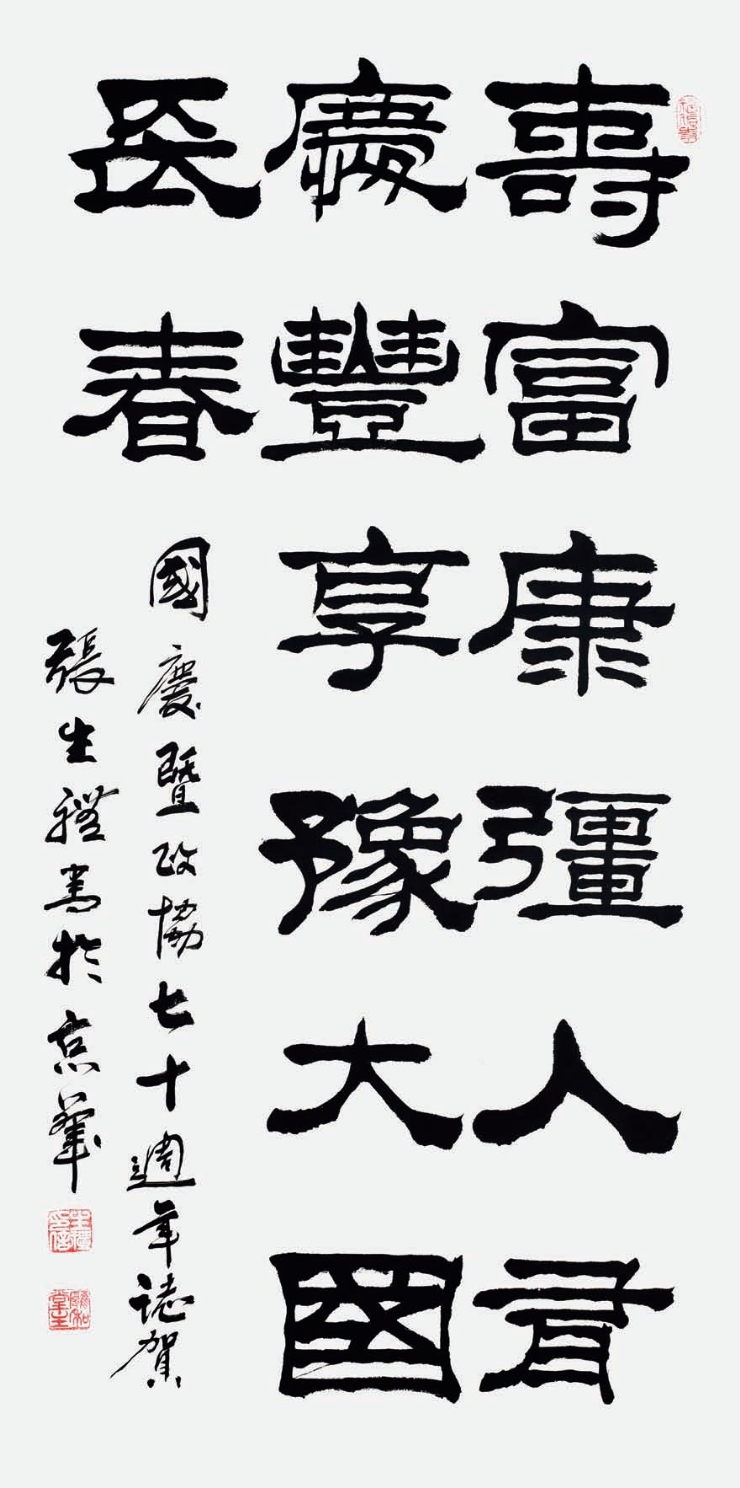 壽富康彊人有
慶豐享豫大國
長春
國慶暨政協七十週年誌賀
張生禮書於京華